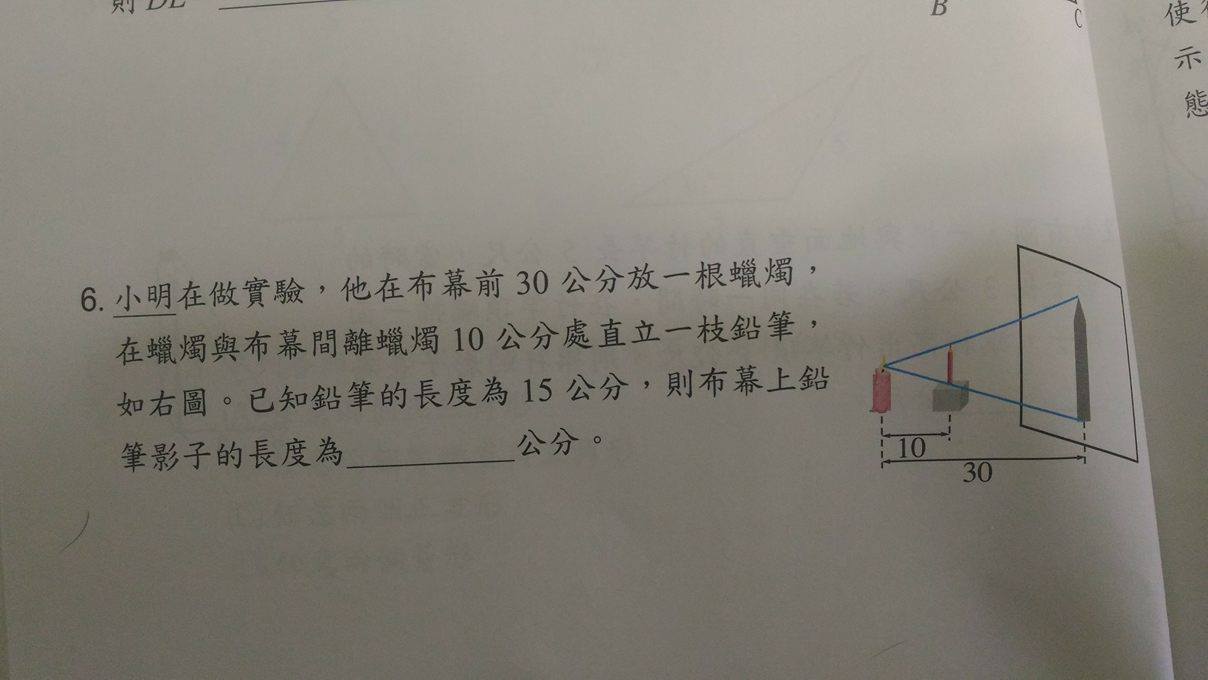 則 DE
B
C
使
示
態
6. 小明在做實驗，他在布幕前 30 公分放一根蠟燭，
在蠟燭與布幕間離蠟燭 10 公分處直立一枝鉛筆，
如右圖。已知鉛筆的長度為 15 公分，則布幕上鉛
筆影子的長度為__________公分。
10
30